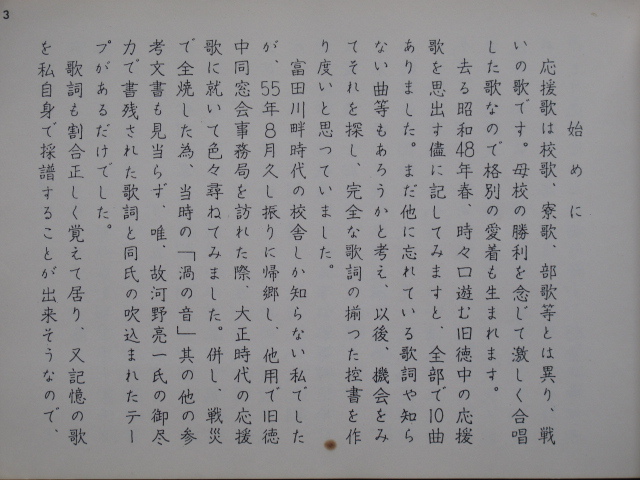 3
始めに
応援歌は校歌、寮歌、部歌等とは異り、戦
いの歌です。母校の勝利を念じて激しく合唱
した歌なので格別の愛着も生まれます。
去る昭和48年春、時々口遊む旧徳中の応援
歌を思出す儘に記してみますと、全部で10曲
ありました。まだ他に忘れている歌詞や知ら
ない曲等もあろうかと考え、以後、機会をみ
てそれを探し、完全な歌詞の揃つた控書を作
り度いと思つていました。
富田川畔時代の校舎しか知らない私でした
が、55年8月久し振りに帰郷し、他用で旧徳
中同窓会事務局を訪れた際、大正時代の応援
歌に就いて色々尋ねてみました。併し、戦災
で全焼した為、当時の「渦の音」其の他の参
考文書も見当らず、唯、故河野亮一氏の御尽
力で書残された歌詞と同氏の吹込まれたテー
プがあるだけでした。
歌詞も割合正しく覚えて居り、又記憶の歌
を私自身で採譜することが出来そうなので、